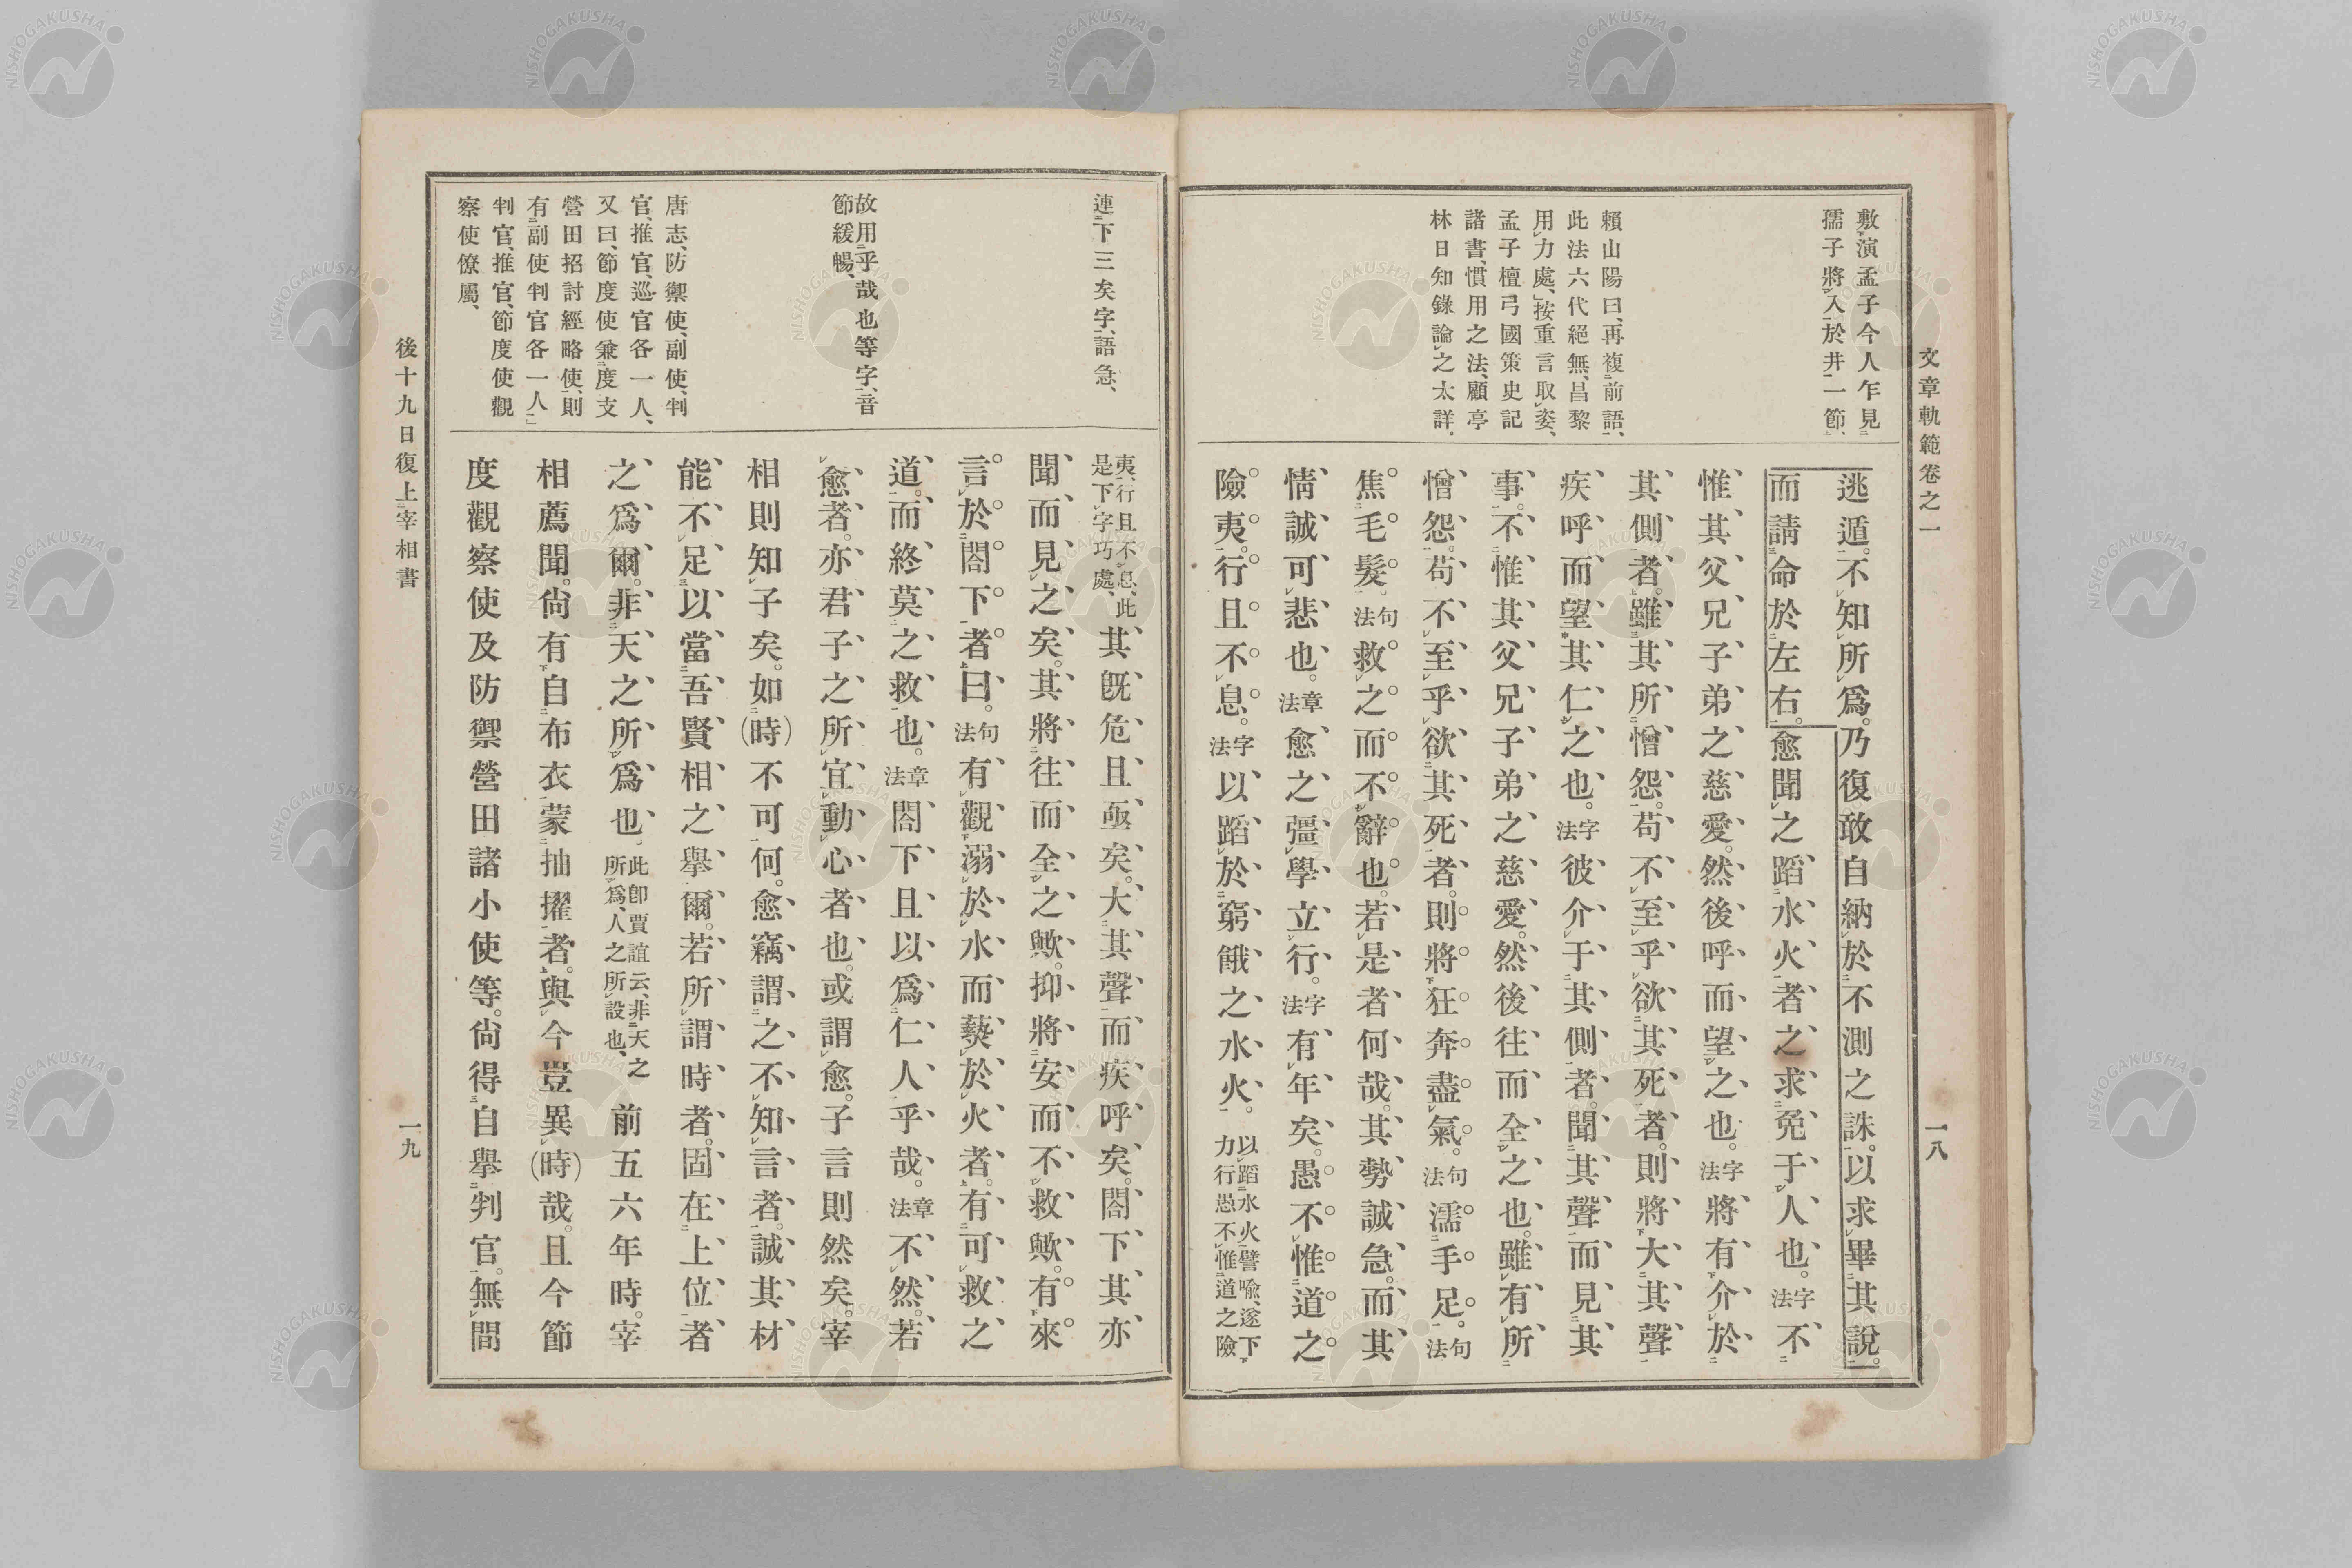 文章軌範卷之一
一八
敷演孟子今人乍見
孺子將入於井一節、
賴山陽曰、再複前語、
此法六代絕無、昌黎
用力處、」按重言取姿、
孟子檀弓國策史記
諸書、慣用之法、顧亭
林日知錄論之太詳、
逃遁。不知所爲。乃復敢自納於不測之誅。以求畢其說。
而請命於左右。愈聞之蹈水火者之求免于人也。字法不
惟其父兄子弟之慈愛。然後呼而望之也。字法將有介於
其側者。雖其所憎怨。苟不至乎欲其死者。則將大其聲
疾呼而望其仁之也。字法彼介于其側者。聞其聲而見其
事。不惟其父兄子弟之慈愛。然後往而全之也。雖有所
憎怨。苟不至乎欲其死者。則將狂奔盡氣。句法濡手足。句法
焦毛髮。句法救之而不辭也。若是者何哉。其勢誠急。而其
情誠可悲也。章法愈之彊學立行。字法有年矣。愚不惟道之
險夷。行且不息。字法以蹈於窮餓之水火。以蹈水火譬喩、遂下力行愚不惟道之險
連下三矣字、語急、
故用乎哉也等字、音
節緩暢、
唐志、防禦使、副使、判
官、推官、巡官各一人、
又曰、節度使兼度支
營田招討經略使、則
有副使判官各一人」
判官、推官、節度使觀
察使僚屬、
夷、行且不息、此是下字巧處、其旣危且亟矣。大其聲而疾呼矣。閤下其亦
聞而見之矣。其將往而全之歟。抑將安而不救歟。有來
言於閤下者曰。句法有觀溺於水而爇於火者。有可救之
道。而終莫之救也。章法閤下且以爲仁人乎哉。章法不然。若
愈者。亦君子之所宜動心者也。或謂愈。子言則然矣。宰
相則知子矣。如(時)不可何。愈竊謂之不知言者。誠其材
能不足以當吾賢相之擧爾。若所謂時者。固在上位者
之爲爾。非天之所爲也。此卽賈誼云、非天之所爲、人之所設也、前五六年時。宰
相薦聞。尙有自布衣蒙抽擢者。與今豈異(時)哉。且今節
度觀察使及防禦營田諸小使等。尙得自擧判官。無間
後十九日復上宰相書
一九